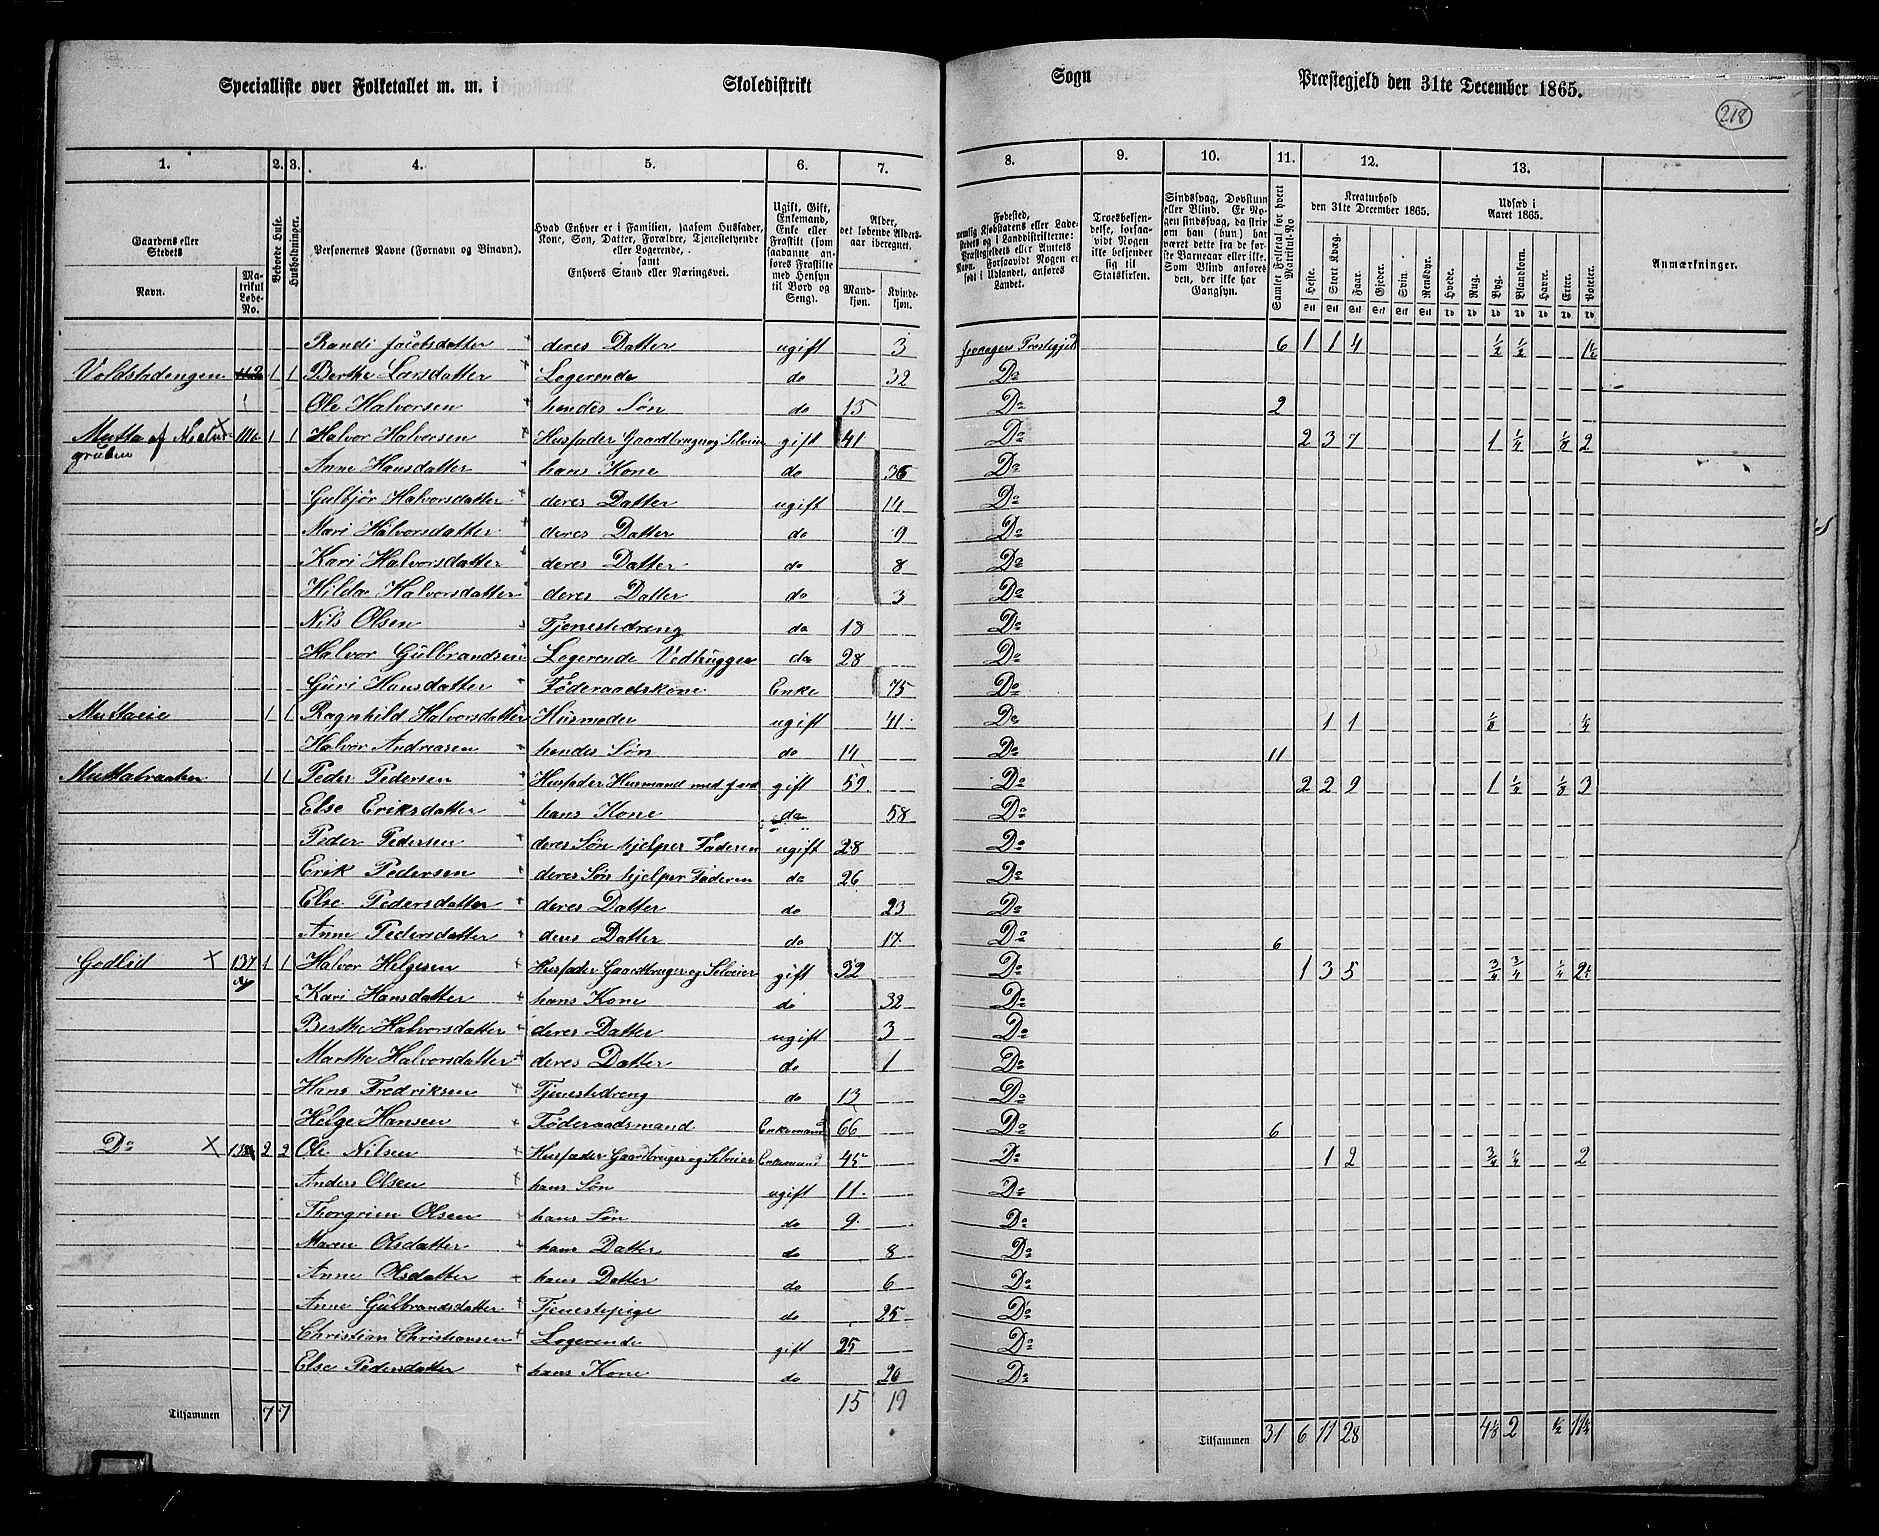 Specialliste over Folketallet m. m. i Skoledistrikt Sogn Præstegjeld den 31te December 1865.
218
1. 2. 3. 4. 5. 6. 7. 8. 9. 10. 11. 12. 13.
Gaardens eller Stedets
Navn.
Matrikul Løbe-No.
Beboede Huse.
Husholdninger.
Personernes Navne (Fornavn og Binavn).
Hvad Enhver er i Familien, saasom Husfader, Kone, Søn, Datter, Forældre, Tjenestetyende eller Logerende, samt Enhvers Stand eller Næringsvei.
Ugift, Gift, Enkemand, Enke eller Fraskilt (som saadanne anføres Fraskilte med Hensyn til Bord og Seng).
Alder, det løbende Alders-aar iberegnet.
Mandkjøn.
Kvindekjøn.
Fødested, nemlig Kjøbstadens eller Ladestedets og i Landdistrikterne: Præstegjeldets eller Amtets Navn. Forsaavidt Nogen er født i Udlandet, anføres Landet.
Troesbekjendelse, forsaavidt Nogen ikke bekjender sig til Statskirken.
Sindssvag, Døvstum eller Blind. Er Nogen sindssvag, da skrives om han (hun) har været dette fra de første Barneaar eller ikke. Som Blind anføres den, der ikke har Gangsyn.
Samlet Folketal for hvert Matrikul-No
Kreaturhold den 31te December 1865.
Heste. Stort Kvæg. Faar. Gjeder. Svin. Rensdyr.
Udsæd i Aaret 1865.
Hvede. Rug. Byg. Blandkorn. Havre. Erter. Poteter.
Anmærkninger.
Randi Jacobsdatter deres Datter ugift 3 Jevnagers Prestegjeld 6 1 1 4 ½ ½ 1½
Voldstadengen 112 1 1 Berthe Larsdatter Logerende do 32 Do
Ole Halvorsen hendes Søn do 15 Do 2
Mutta af 1 1 Halvor Halvorsen Husfader Gaardbruger og Selveier gift 41 Do 2 3 7 1 ¼ ⅛ 2
Anne Hansdatter hans Kone do 36 Do
Gulbjør Halvorsdatter deres Datter ugift 14 Do
Mari Halvorsdatter deres Datter do 9 Do
Kari Halvorsdatter deres Datter do 8 Do
Hilda Halvorsdatter deres Datter do 3 Do
Nils Olsen Tjenestedreng do 18 Do
Halvor Gulbrandsen Logerende Vedhugger do 28 Do
Guri Hansdatter Føderaadskone Enke 75 Do
Muttaeie 1 1 Ragnhild Halvorsdatter Husmoder ugift 41 Do 1 1 ⅛ ¼
Halvor Andreasen hendes Søn do 14 Do 11
Muttabraaten 1 1 Peder Pedersen Husfader Husmand med Jord gift 59 Do 2 2 9 1 ¼ ⅛ 3
Else Eriksdatter hans Kone do 58 Do
Peder Pedersen deres Søn hjelper Faderen ugift 28 Do
Erik Pedersen deres Søn hjelper Faderen do 26 Do
Else Pedersdatter deres Datter do 23 Do
Anne Pedersdatter deres Datter do 17 Do 6
Godlid 137 1 1 Halvor Helgesen Husfader Gaardbruger og Selveier gift 32 Do 1 3 5 ¾ ¾ ¼
Kari Hansdatter hans Kone do 32 Do
Berthe Halvorsdatter deres Datter ugift 3 Do
Marthe Halvorsdatter deres Datter do 1 Do
Hans Fredriksen Tjenestedreng do 13 Do
Helge Hansen Føderaadsmand Enkemand 66 Do 6
Do 2 2 Ole Nilsen Husfader Gaardbruger og Selveier Enkemand 45 Do 1 2 ¾ ¼ 2
Anders Olsen hans Søn ugift 11 Do
Thorgrim Olsen hans Søn do 9 Do
Maren Olsdatter hans Datter do 8 Do
Anne Olsdatter hans Datter do 6 Do
Anne Gulbrandsdatter Tjenestepige do 25 Do
Christian Christiansen Logerende gift 25 Do
Else Pedersdatter hans Kone do 20 Do
Tilsammen 7 7 15 19 Tilsammen 31 6 11 28 4⅛ 2 ½